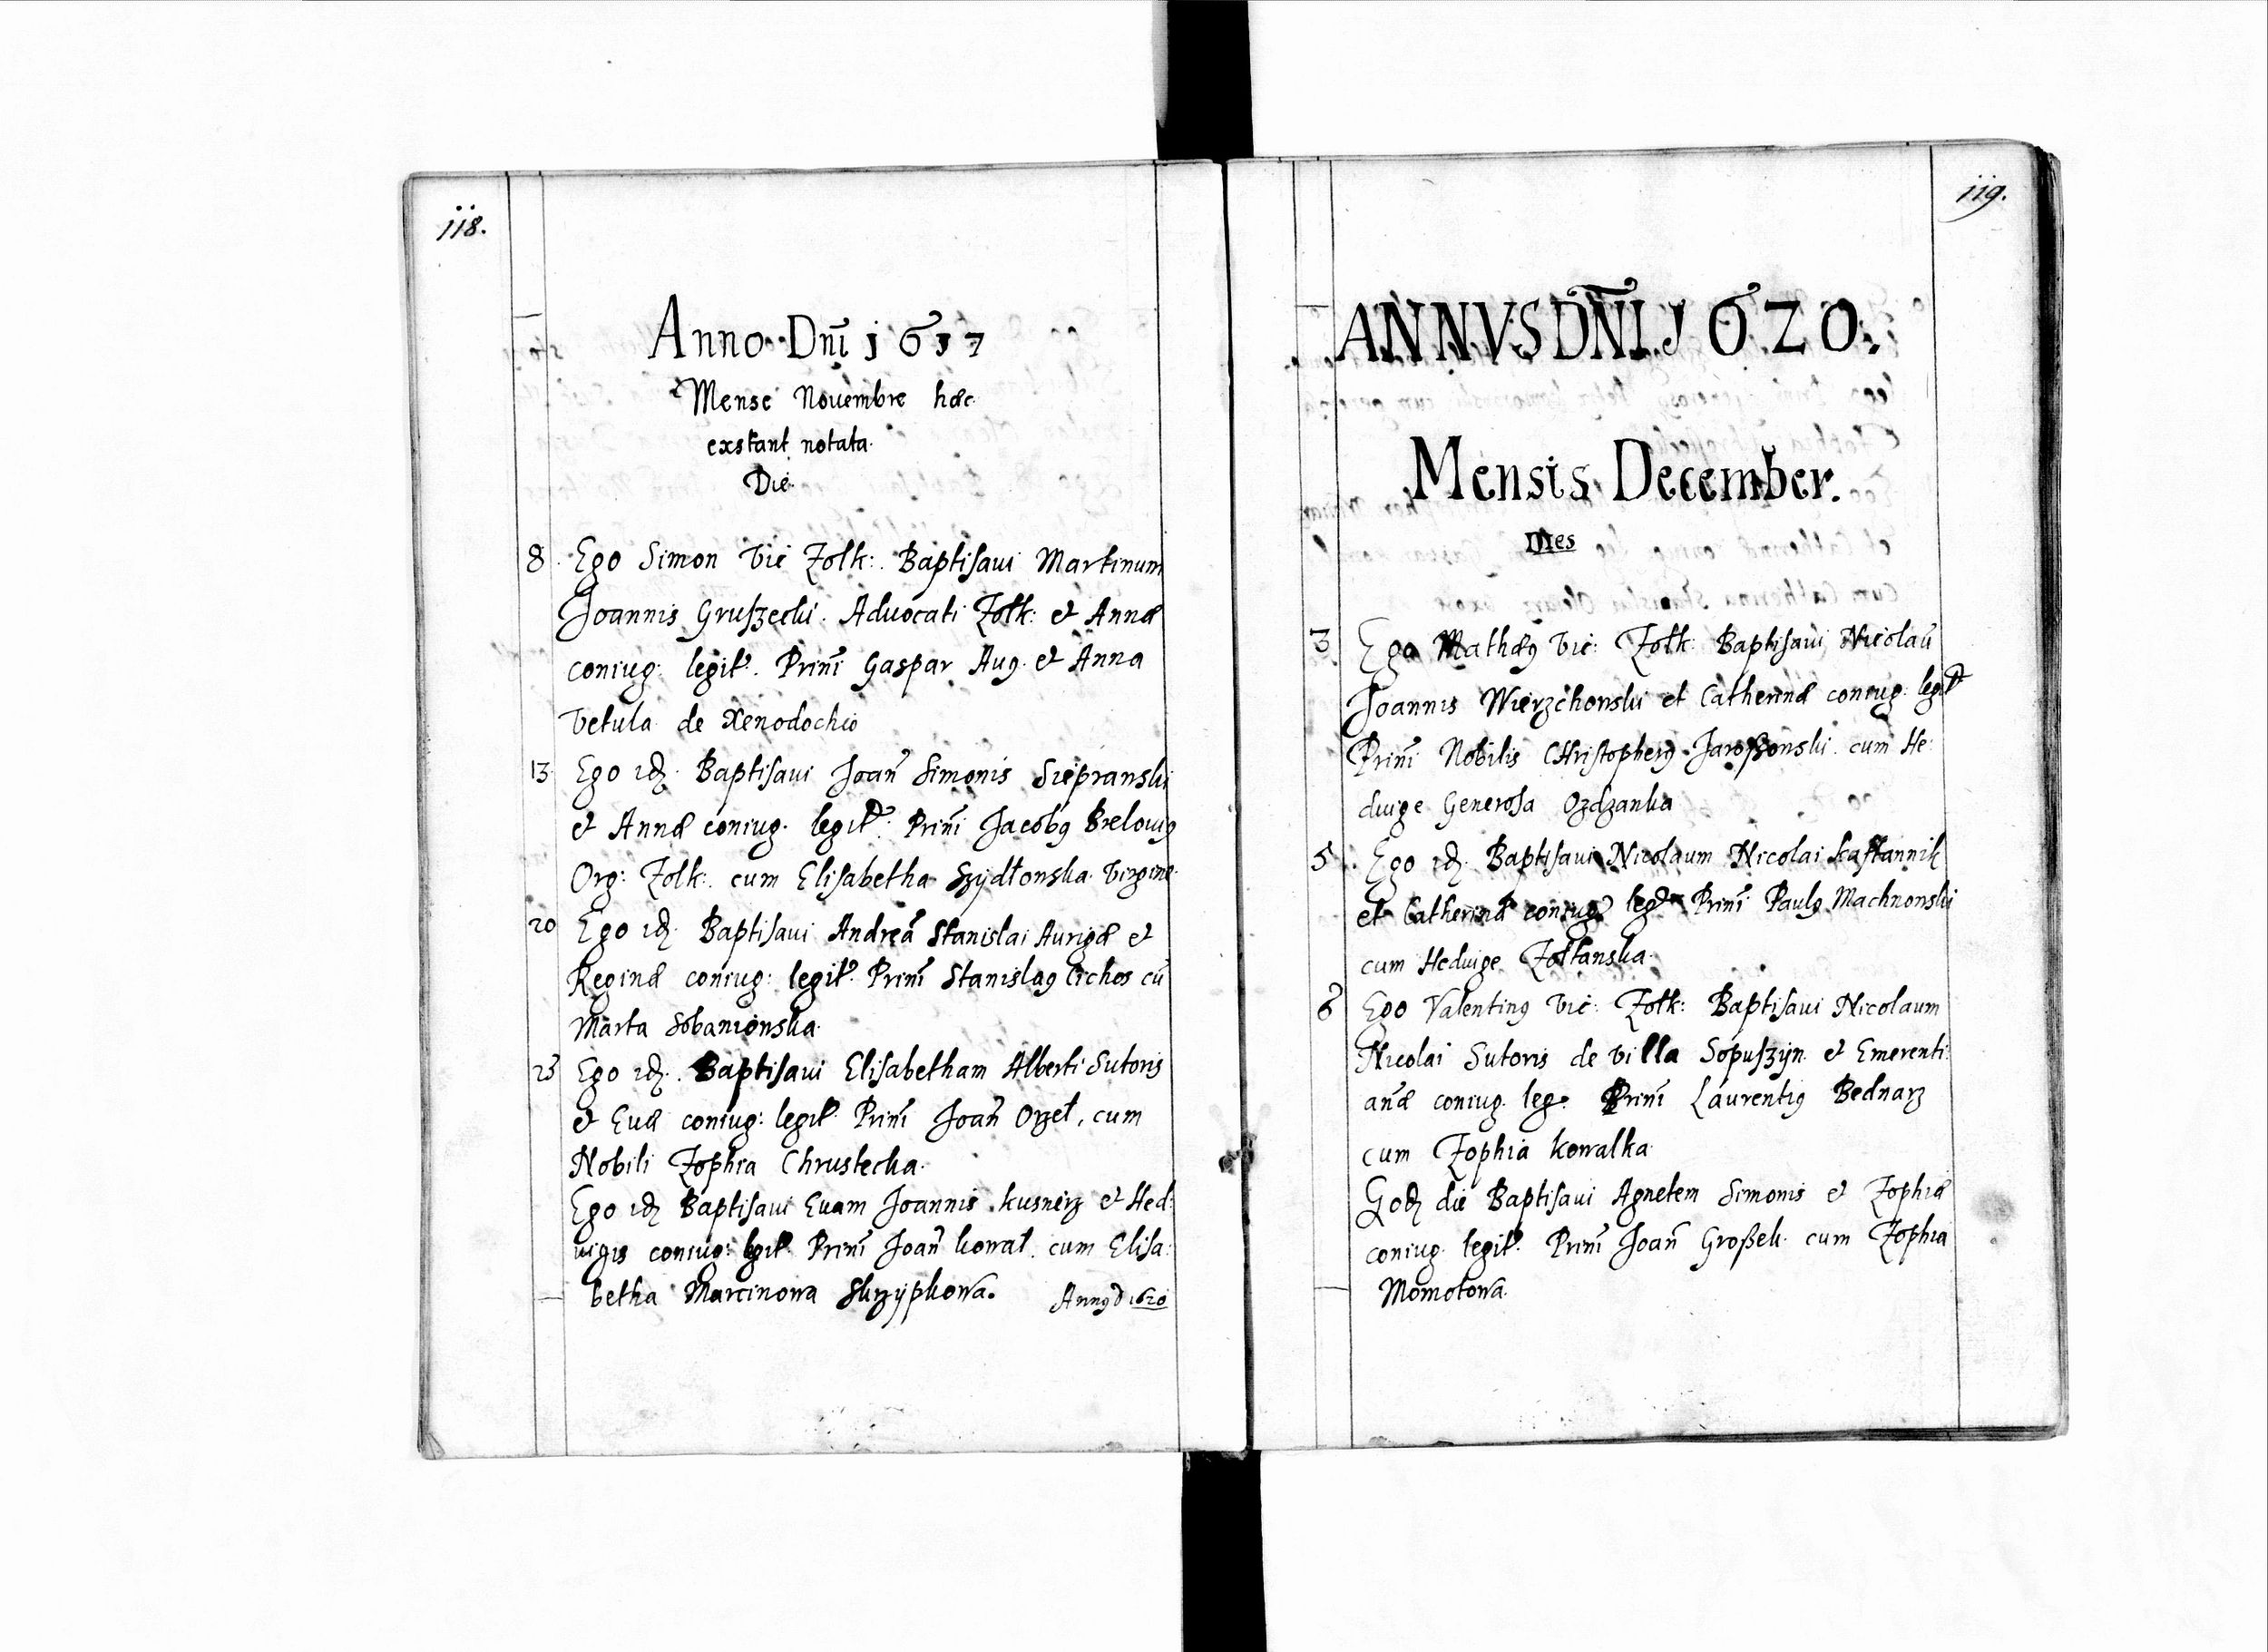 118.
Anno Dnī 1617
Mense Nouembre hæc
exstant notata.
Die.
8 Ego Simon Vic Zolk: Baptisaui Martinum
Joannis Gruszecki Aduocati Zolk: et Annæ
coniug: legit. Prinī Gaspar Aug. et Anna
Vetula de Xenodochio
13 Ego idē Baptisaui Joan̄ Simonis Siepranski
et Annæ coniug. legit. Prinī Jacobꝯ
Org: Zolk: cum Elisabetha Szydłowska Virgine.
20 Ego idē Baptisaui Andreā Stanislai Aurigæ et
Reginæ coniug: legit. Prinī Stanislaꝯ Cichos cū
Marta Sobaniowska.
23 Ego idē Baptisaui Elisabetham Alberti Sutoris
et Euæ coniug: legit. Prinī Joan̄ Orzeł, cum
Nobili Zophia Chrustecka.
Ego idē Baptisaui Euam Joannis kusnierz et Hed:
uigis coniug: legit. Prinī Joan̄ kowal. cum Elisa:
betha Marcinowa Skrzypkowa. Annꝯ D 1620
119.
ANNVS DN̄I 1620.
Mensis December.
Dies
3 Ego Mathæꝯ Vic: Zolk: Baptisaui Nicolaū
Joannis Wierzchowski et Catherinæ coniug: legit
Prinī Nobilis CHristopherꝯ Jaroszowski cum He:
duige Generosa Ozdzanka
5. Ego idē Baptisaui Nicolaum Nicolai
et Catherinæ coniug: legit Prinī Paulꝯ Machnowski
cum Heduige Zołtanska.
6 Ego Valentinꝯ Vic: Zolk: Baptisaui Nicolaum
Nicolai Sutoris de villa Sopuszyn et Emerenti:
an̄æ coniug. leg: Prinī Laurentiꝯ Bednarz
cum Zophia kowalka.
Eodē die Baptisaui Agnetem Simonis et Zophiæ
coniug. legit. Prinī Joan̄ Großek cum Zophia
Momotowa.